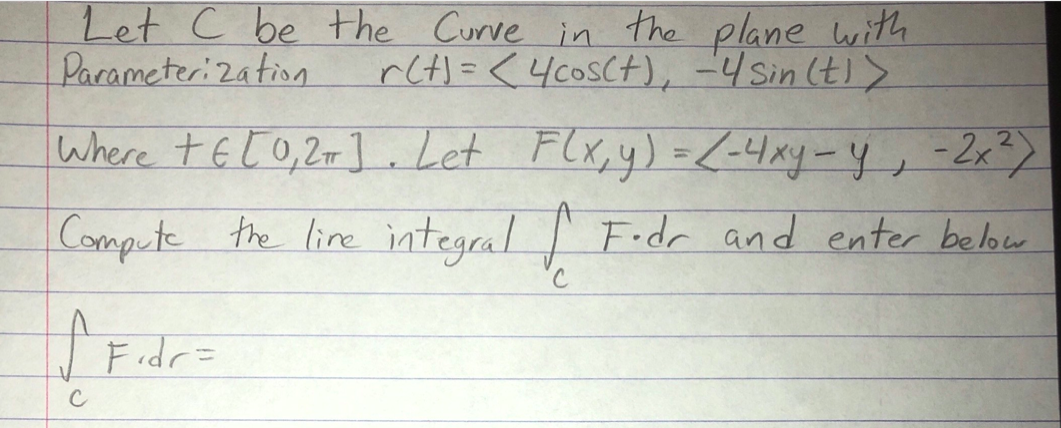 Let C be the Curve in the plane with
Parameterization r(t)=<4cos(t), -4sin(t)>
Where t∈[0,2π]. Let F(x,y)=<-4xy-y, -2x²>
Compute the line integral ∫_C F·dr and enter below
∫_C F·dr=